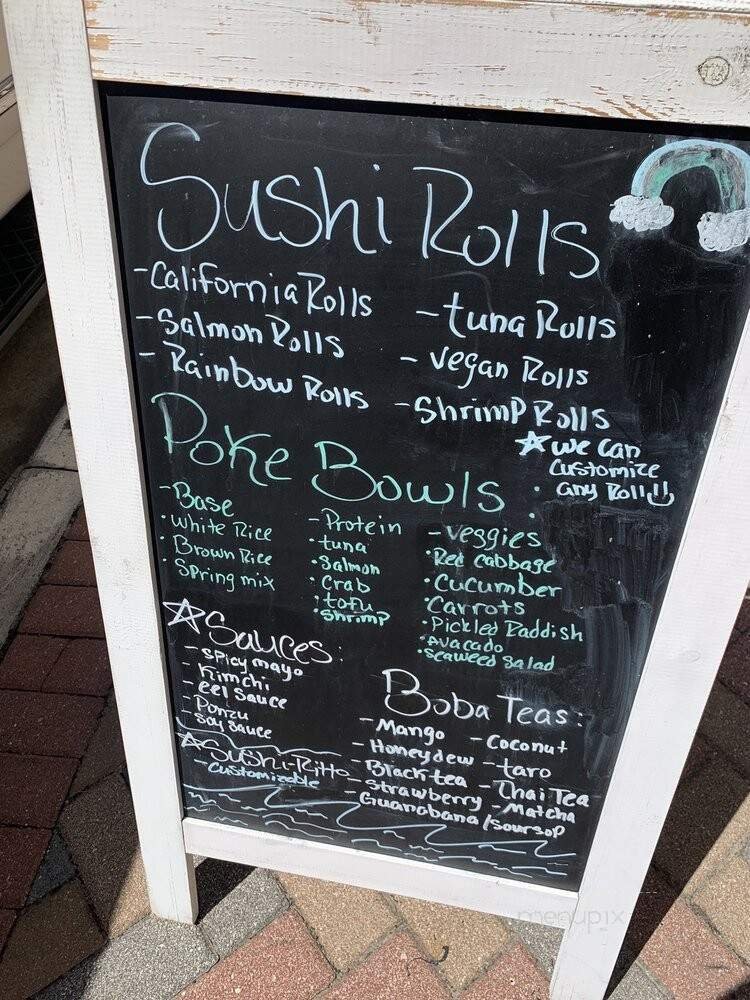 Sushi Rolls
- California Rolls
- Salmon Rolls
- Rainbow Rolls
- tuna Rolls
- vegan Rolls
- Shrimp Rolls
☆ we can
customize
any Roll!!
Poke Bowls
- Base
• White Rice
• Brown Rice
• Spring mix
- Protein
• tuna
• Salmon
• Crab
• tofu
• Shrimp
- veggies
• Red cabbage
• Cucumber
• Carrots
• Pickled Raddish
• Avacado
• Seaweed Salad
☆ Sauces:
- spicy mayo
- Kimchi
- eel sauce
- Ponzu
- Soy Sauce
☆ Sushi-Ritto
- Customizable
Boba Teas:
- Mango
- Honeydew
- Black tea
- Strawberry
- Guanabana/soursop
- Coconut
- taro
- Thai Tea
- Matcha
menupix